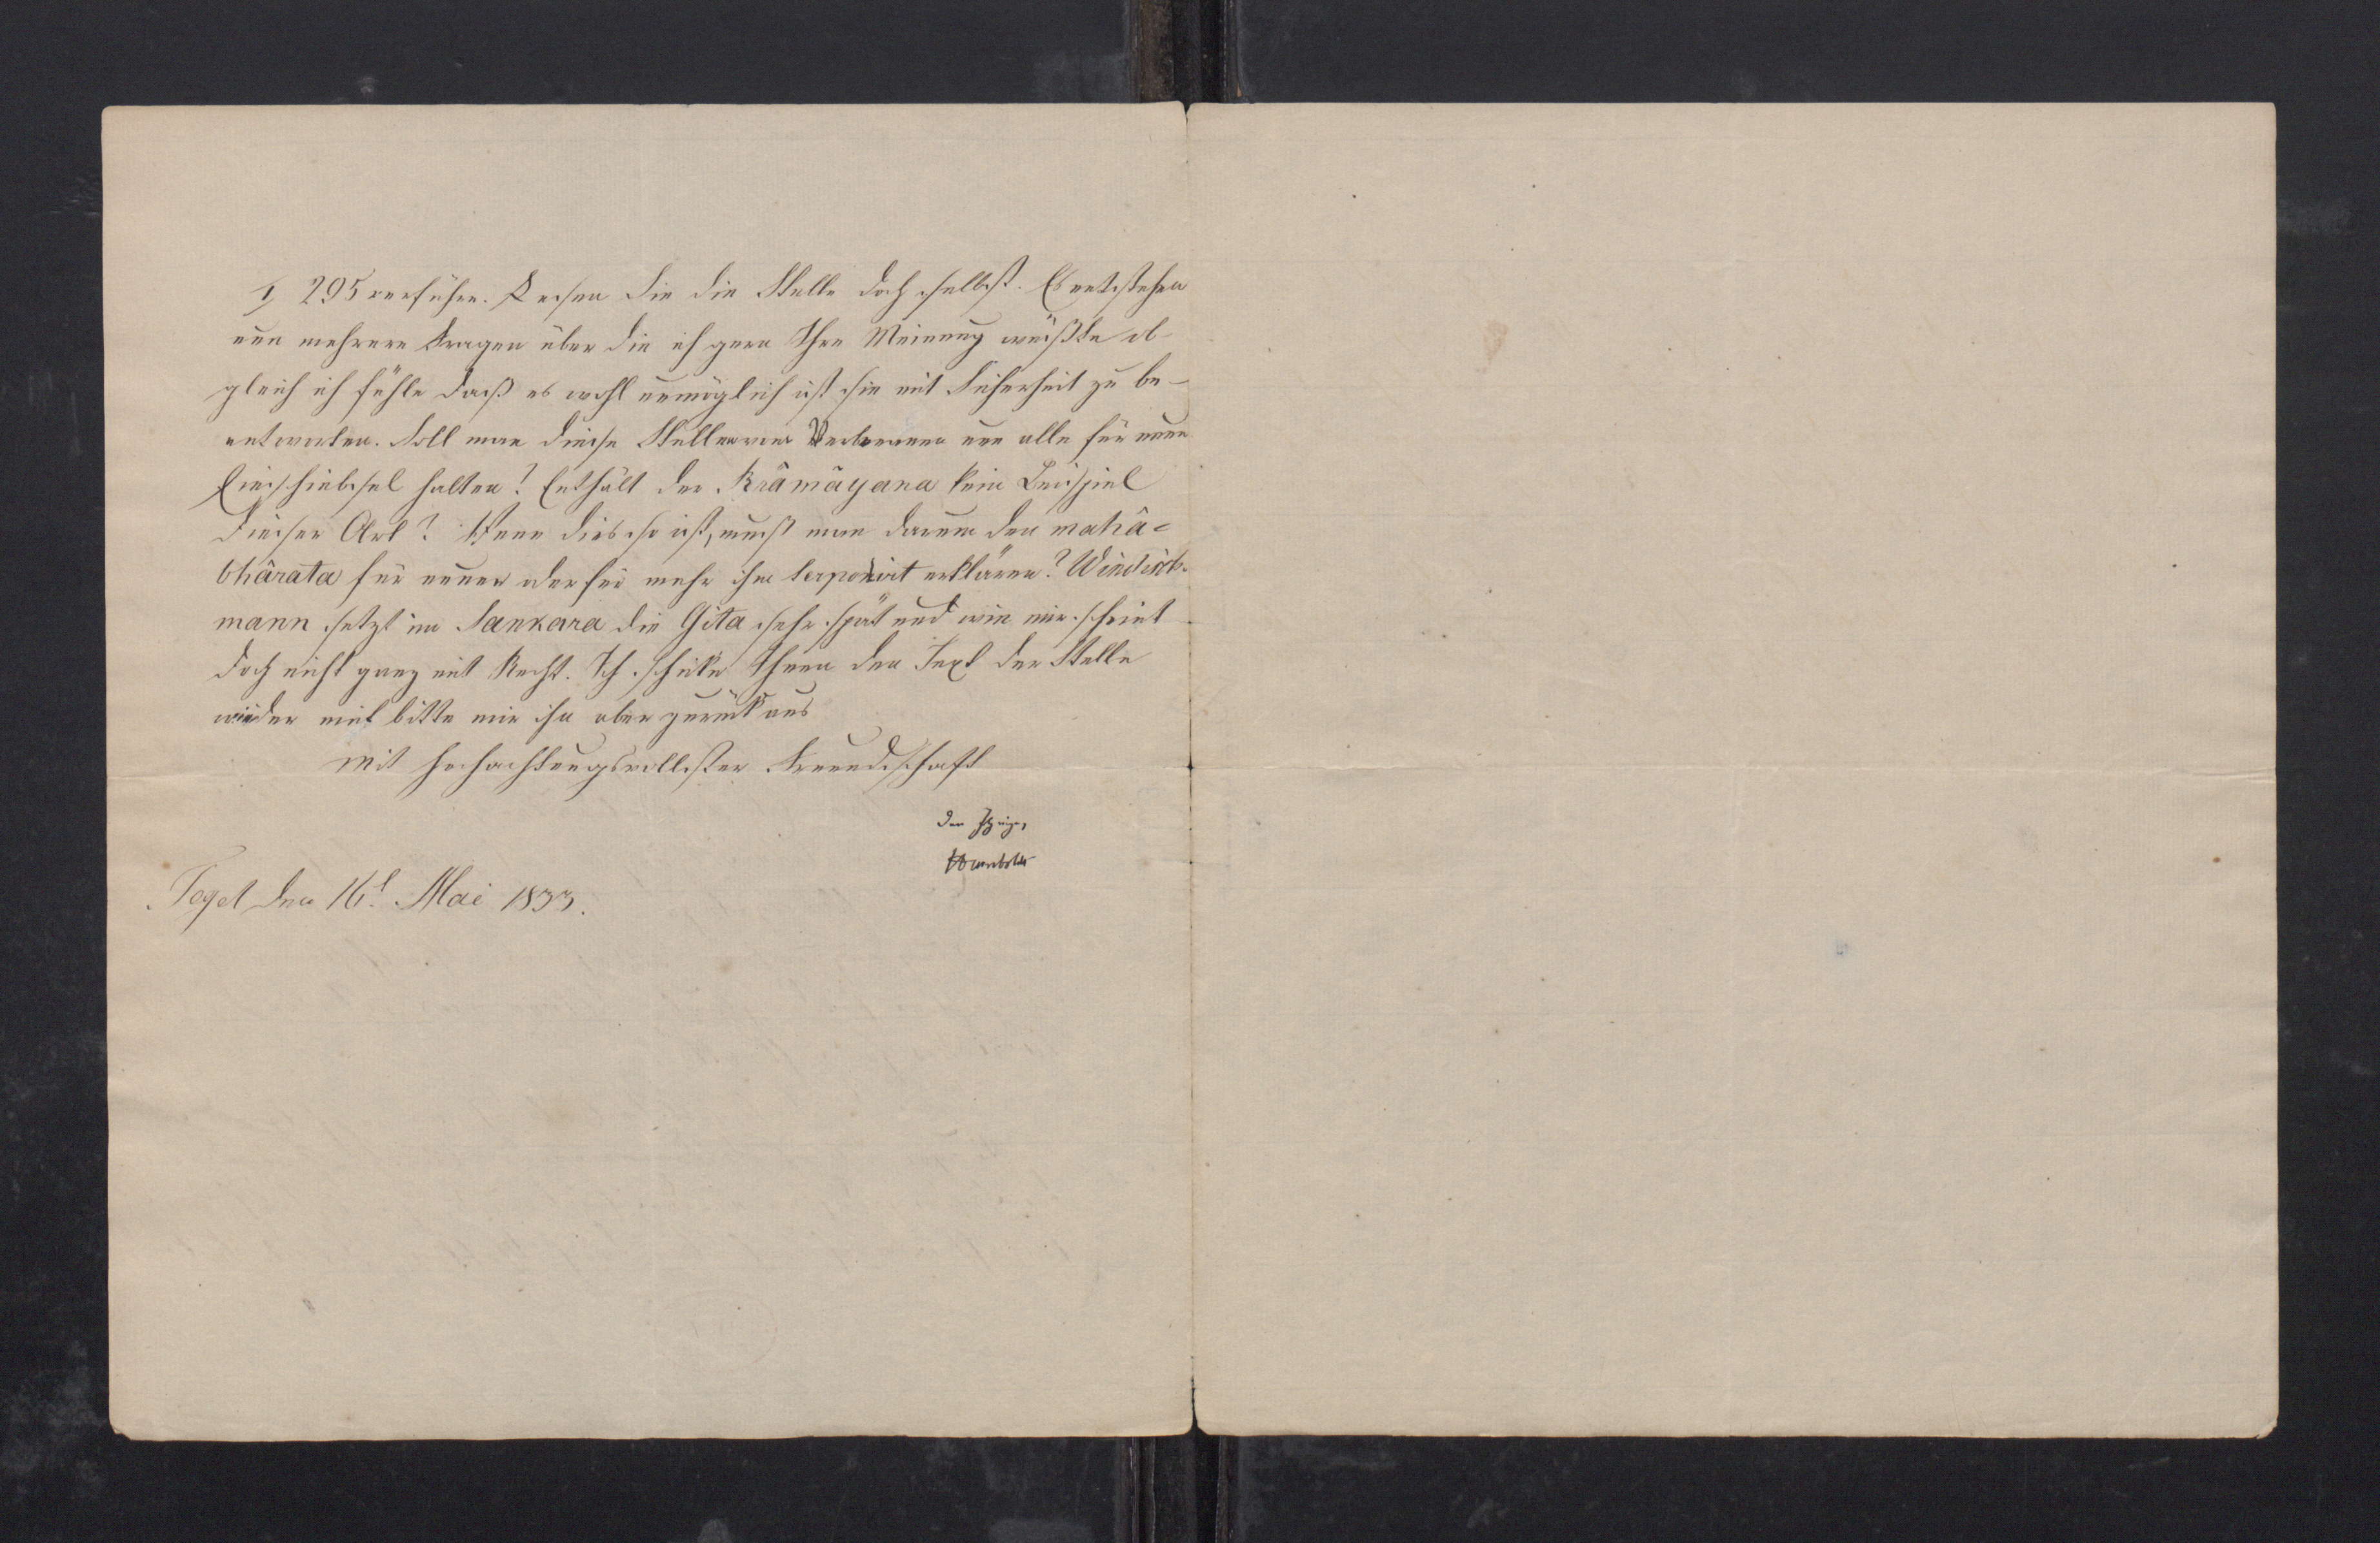 1, 295 verführe. Lesen Sie die Stelle doch selbst. Es entstehen
nun mehrere Fragen über die ich gern Ihre Meinung wüßte ob-
gleich ich fühle daß es wohl unmöglich ist sie mit Sicherheit zu be-
antworten. Soll man diese Stellen von nun alle für neue
Einschiebsel halten? Enthält der Râmâyana kein Beispiel
dieser Art? Wenn dies so ist, muß man darum den mahâ-
bhârata für neuer oder für mehr erklären? Windisch-
mann setzt im Sankara die Gita sehr spät und wie mir scheint
doch nicht ganz mit Recht. Ich schicke Ihnen den Text der Stelle
wieder mit bitte mir ihn aber zurück aus
Mit hochachtungsvollster Freundschaft
der Ihrige,
Humboldt
Tegel den 16t. Mai 1833.